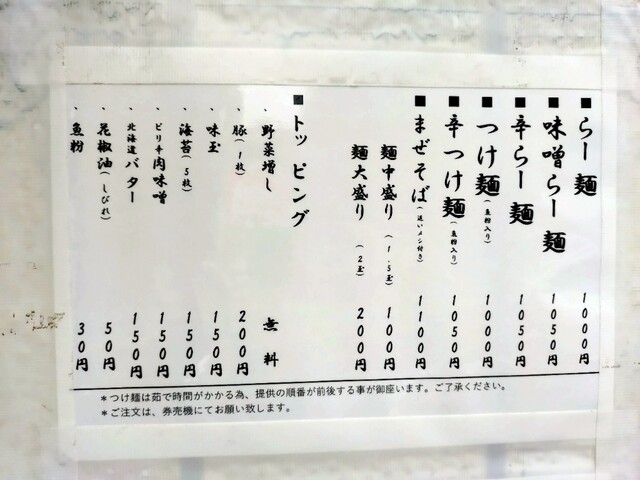 ■らー麺 1000円
■味噌らー麺 1050円
■辛らー麺 1050円
■つけ麺(魚粉入り) 1000円
■辛つけ麺(魚粉入り) 1050円
■まぜそば(追いメシ付き) 1100円
麺中盛り(1.5玉) 100円
麺大盛り(2玉) 200円
■トッピング
、野菜増し 無料
、豚(1枚) 200円
、味玉 150円
、海苔(5枚) 150円
、ピリ辛肉味噌 150円
、北海道バター 150円
、花椒油(しびれ) 50円
、魚粉 30円
*つけ麺は茹で時間がかかる為、提供の順番が前後する事が御座います。ご了承ください。
*ご注文は、券売機にてお願い致します。